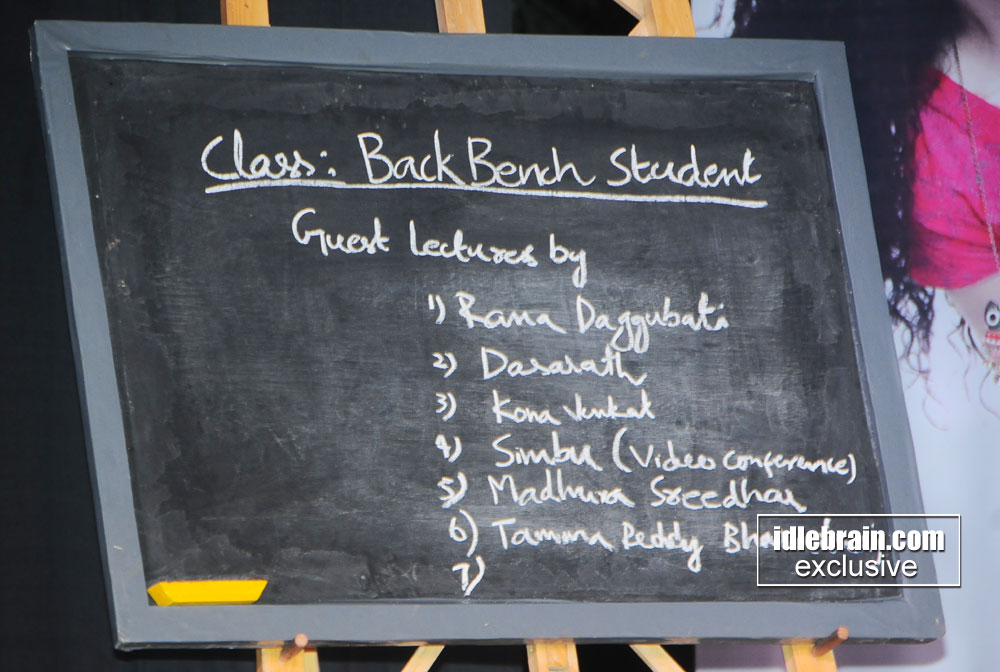 Class: BackBench Student
Guest Lectures by
1) Rana Daggubati
2) Dasarath
3) Kona Venkat
4) Simbu (Video conference)
5) Madhura Sreedhar
6) Tamma Reddy
7)
idlebrain.com
exclusive